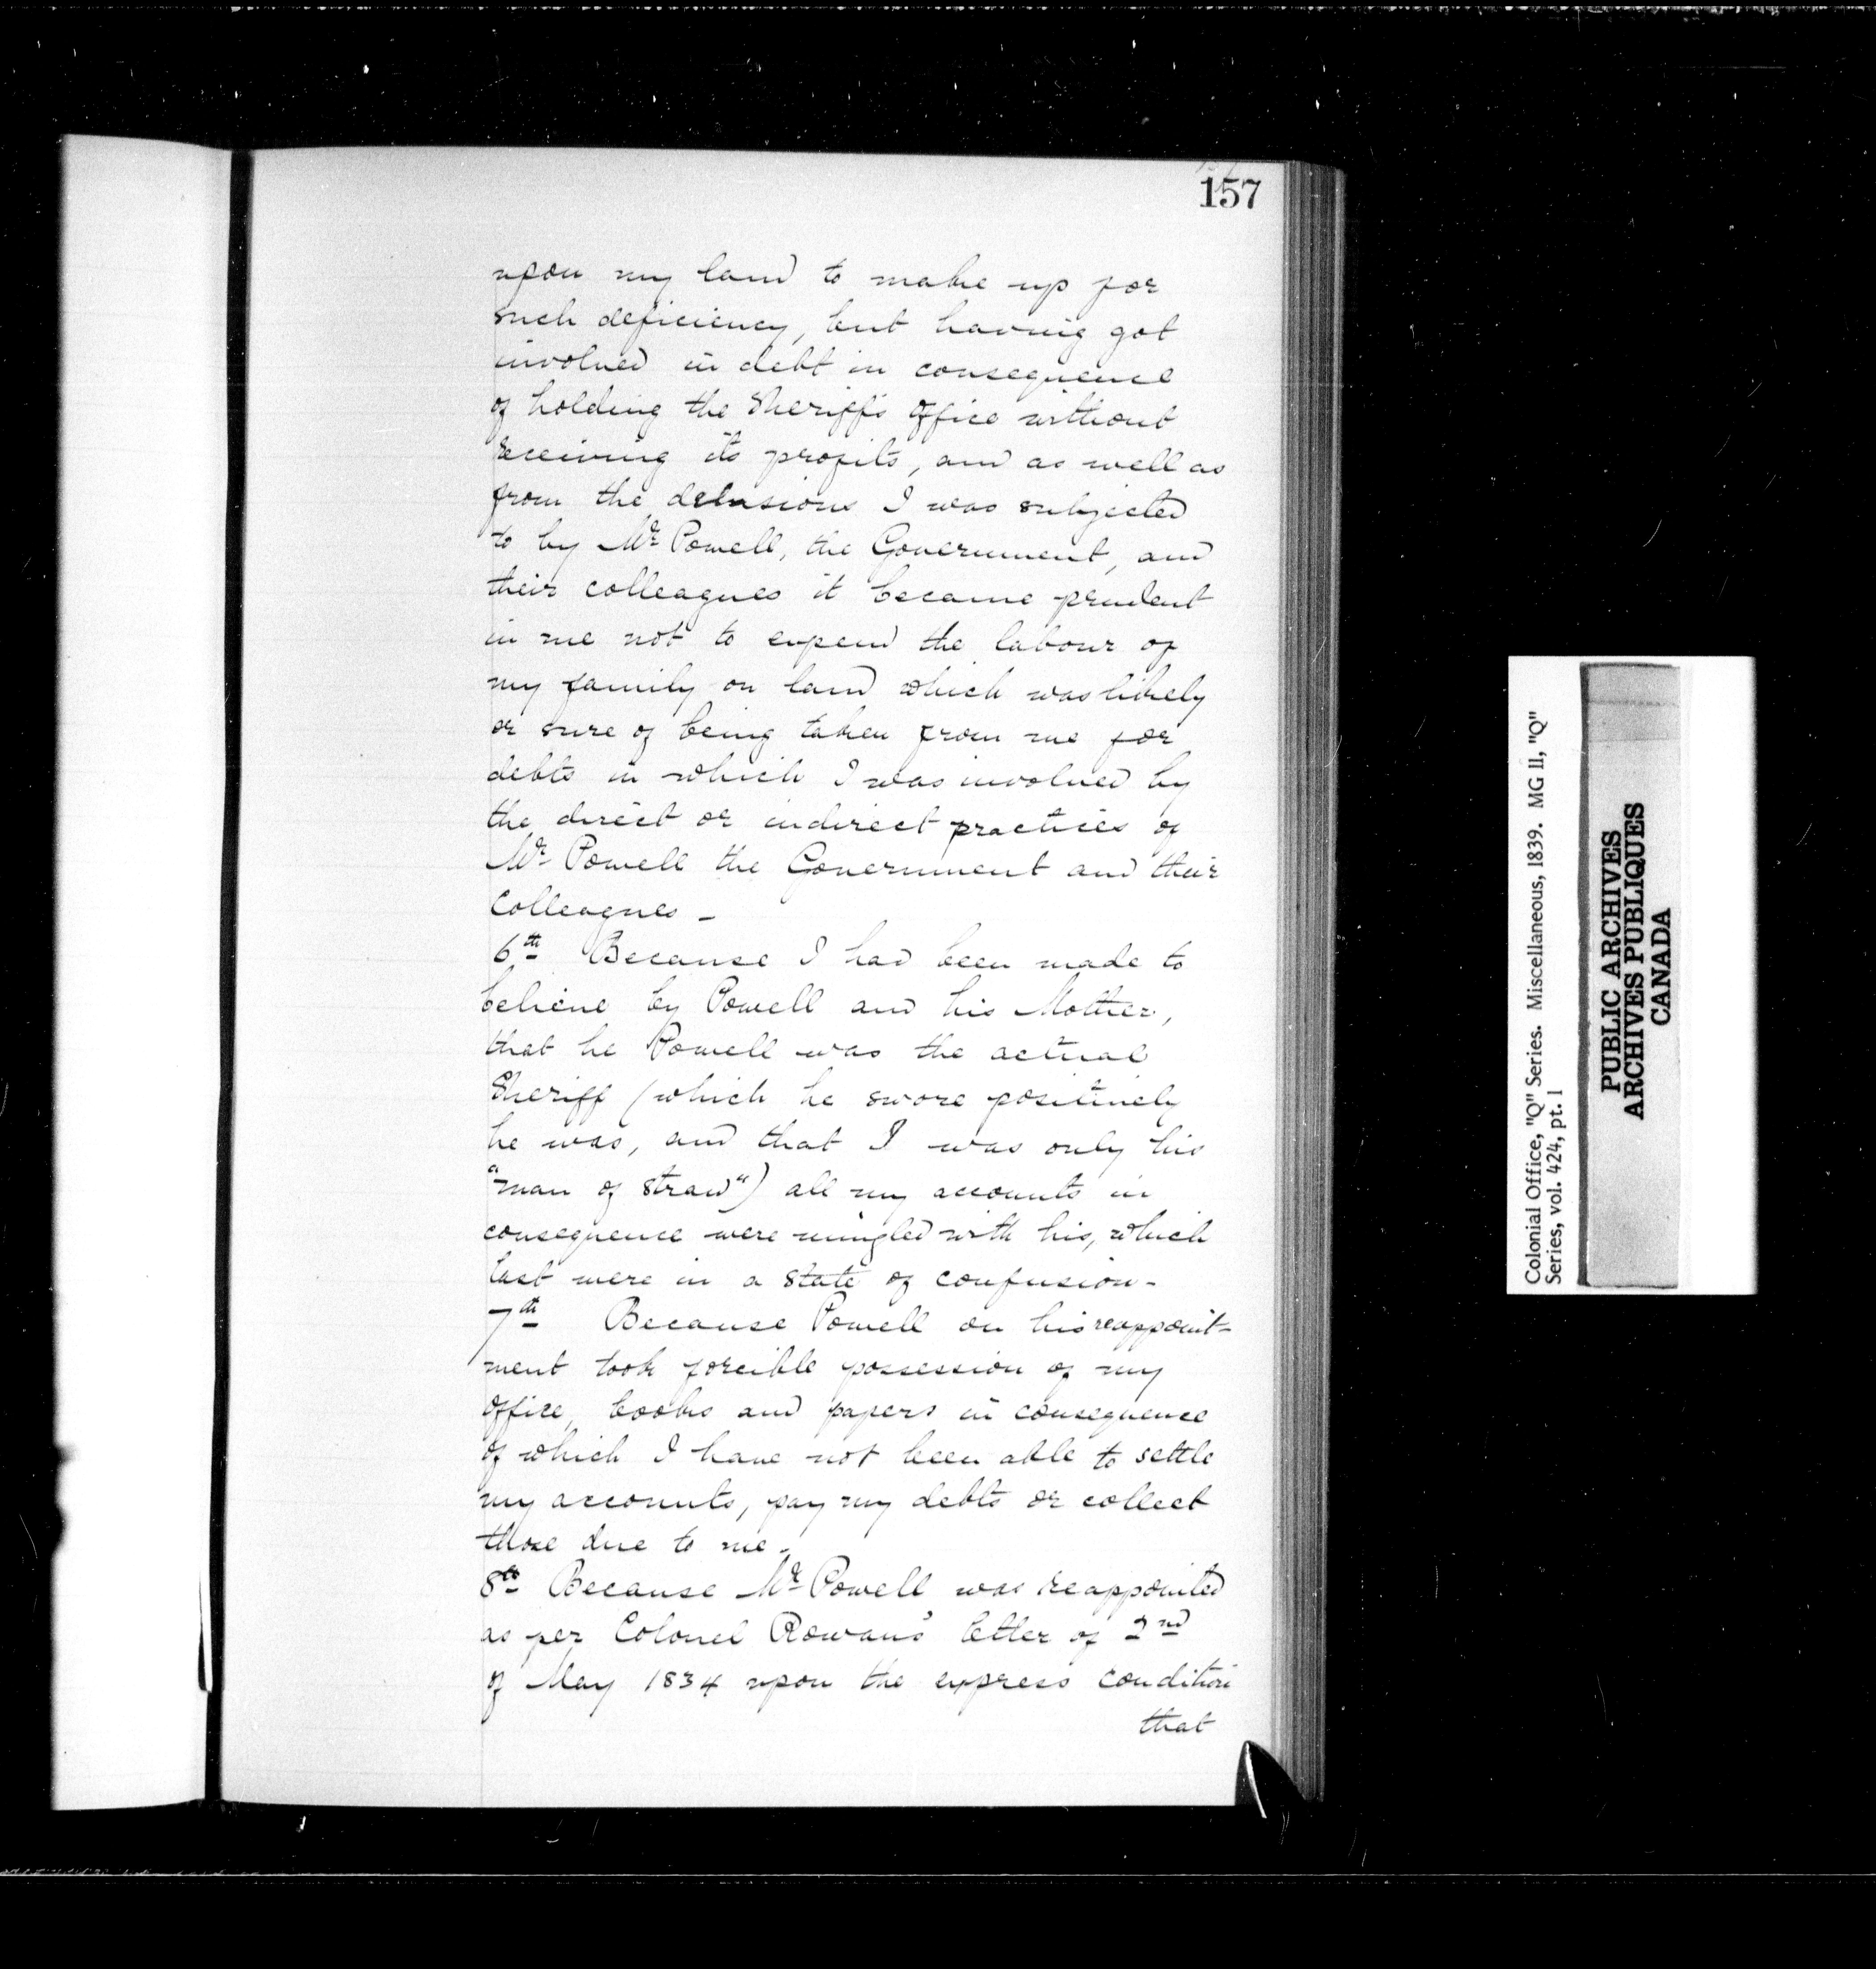 157
upon my land to make up for
such deficiency, but having got
involved in debt in consequence
of holding the Sheriff's Office without
receiving its profits, and as well as
from the delusions I was subjected
to by Mr Powell, the Government, and
their colleagues it became prudent
in me not to expend the labour of
my family on land which was likely
or sure of being taken from me for
debts in which I was involved by
the direct or indirect practices of
Mr Powell the Government and their
Colleagues -
6th Because I had been made to
believe by Powell and his Mother,
that he Powell was the actual
Sheriff (which he swore positively
he was, and that I was only his
"man of straw") all my accounts in
consequence were mingled with his, which
last were in a state of confusion -
7th Because Powell on his reappoint-
ment took forcible possession of my
Office, books and papers in consequence
of which I have not been able to settle
my accounts, pay my debts or collect
those due to me -
8th Because Mr Powell was reappointed
as per Colonel Rowan's letter of 2nd
of May 1834 upon the express condition
that
Colonial Office, "Q" Series. Miscellaneous, 1839. MG 11, "Q"
Series, vol. 424, pt. 1
PUBLIC ARCHIVES
ARCHIVES PUBLIQUES
CANADA